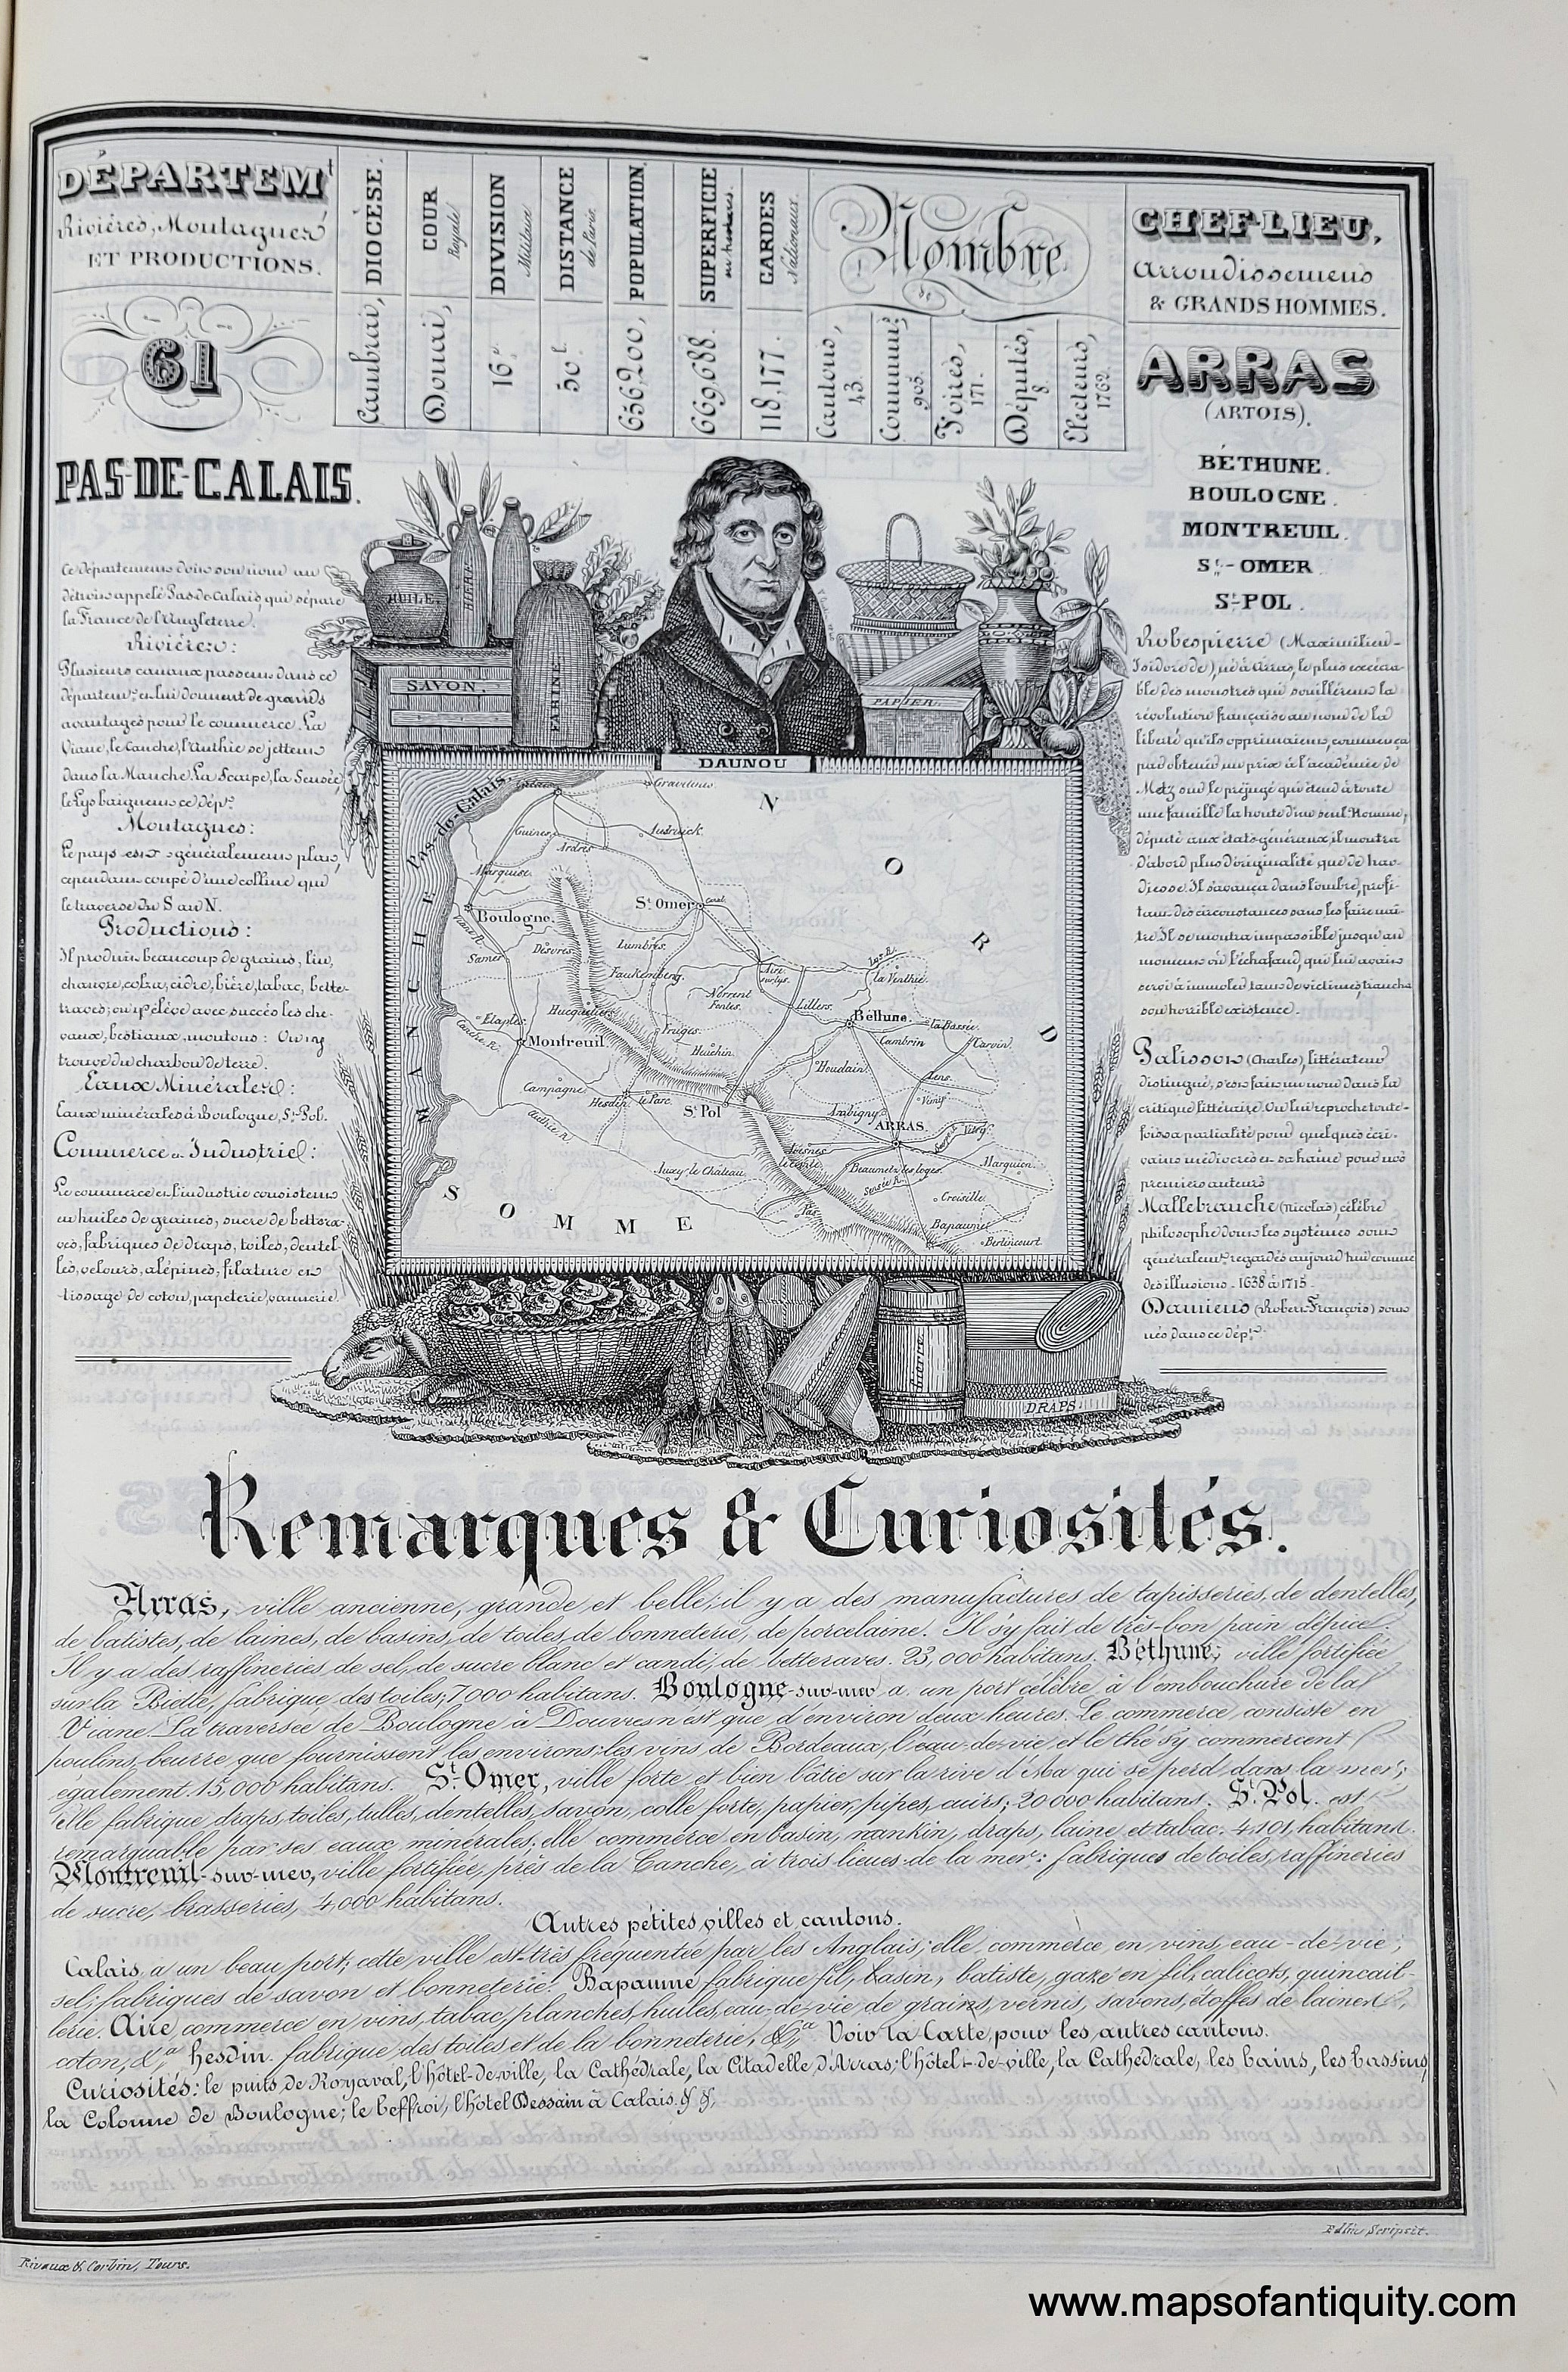 DÉPARTEMt
Rivières, Montagnes
ET PRODUCTIONS.
61
DIOCÈSE.
Cambrai,
COUR
Royale
Douai,
DIVISION
Militaire
16e
DISTANCE
de Paris.
50 l.
POPULATION
656,200,
SUPERFICIE
en hectares.
669,688.
GARDES
Nationaux.
118,177.
Nombre
de
Cantons,
43.
Communes
903.
Foires,
171.
Députés,
8.
Electeurs,
1762.
CHEF-LIEU,
Arrondissemens
& GRANDS HOMMES.
ARRAS
(ARTOIS).
BÉTHUNE.
BOULOGNE.
MONTREUIL.
St-OMER
St-POL.
PAS-DE-CALAIS.
Ce département doit son nom au
détroit appelé Pas-de-Calais, qui sépare
la France de l'Angleterre.
Rivières:
Plusieurs canaux passent dans ce
départemt et lui donnent de grands
avantages pour le commerce. La
Viane, le Canche, l'Authie se jettent
dans la Manche. La Scarpe, la Sensée,
le Lys baignent ce dépt.
Montagnes:
Le pays est généralement plat,
cependant coupé d'une colline qui
le traverse du S au N.
Productions:
Il produit beaucoup de grains, lin,
chanvre, colza, cidre, bière, tabac, bette-
raves; on y élève avec succès les che-
vaux, bestiaux, moutons: On y
trouve du charbon de terre.
Eaux Minérales:
Eaux minérales à Boulogne, St-Pol.
Commerce et Industrie:
Le commerce et l'industrie consistent
en huiles de graines, sucre de bettera-
ves, fabriques de draps, toiles, dentel-
les, velours, alépines, filature et
tissage de coton, papeterie, vannerie.
Robespierre (Maximilien-
Isidore de), né à Arras, le plus exécra-
ble des monstres qui souillèrent la
révolution française au nom de la
liberté qu'ils opprimaient, commença
par obtenir un prix à l'académie de
Metz sur le préjugé qui étend à toute
une famille la honte d'un seul. Nommé,
député aux états-généraux, il montra
d'abord plus d'originalité que de har-
diesse. Il s'avança dans l'ombre, profi-
tant des circonstances sans les faire naî-
tre. Il se montra impassible jusqu'au
moment où l'échafaud, qui lui avait
servi à immoler tant de victimes, trancha
son horrible existence.
Palissot (Charles), littérateur
distingué, s'est fait un nom dans la
critique littéraire. On lui reproche toute-
fois sa partialité pour quelques écri-
vains médiocres et sa haine pour nos
premiers auteurs
Mallebranche (Nicolas), célèbre
philosophe dont les systèmes sont
généralemt regardés aujourd'hui comme
des illusions. 1638 à 1715.
Damiens (Robert-François) sont
nés dans ce dépt.
HUILE.
BIÈRE.
SAVON.
FARINE.
PAPIER.
DAUNOU
Pas-de-Calais.
MANCHE
NORD
SOMME
Calais
Gravelines
Guines
Audruick
Ardres
Marquise
Boulogne.
St Omer
Viane R.
Samer
Désvres
Lumbres
Faukemberg.
Aire
sur lys.
Lys R.
la Venthie.
Norrent
Fontes.
Lillers.
Etaples
Hucqueliers
Fruges
Béthune.
la Bassée.
Cambrin
Carvin
Canche R.
Montreuil.
Heuchin
Houdain
Lens.
Campagne
Hesdin
le Parc
St Pol
Vimy
Aubigny
ARRAS.
Vitry.
Authie R.
Avesnes
le Comte.
Auxy le Château
Beaumetz les loges.
Marquion
Sensée R.
Croisille.
Pas
Bapaume
Bertincourt.
BEURRE
DRAPS.
Remarques & Curiosités.
Arras, ville ancienne, grande et belle; il y a des manufactures de tapisseries, de dentelles,
de batistes, de laines, de basins, de toiles, de bonneterie, de porcelaine. Il s'y fait de très-bon pain d'épice.
Il y a des raffineries de sel, de sucre blanc et candi, de betteraves. 23,000 habitans. Béthune, ville fortifiée
sur la Biette, fabrique des toiles; 7000 habitans. Boulogne-sur-mer a un port célèbre à l'embouchure de la
Viane. La traversée de Boulogne à Douvres n'est que d'environ deux heures. Le commerce consiste en
poulins, beurre que fournissent les environs; les vins de Bordeaux, l'eau-de-vie, et le thé s'y commercent
également. 15,000 habitans. St-Omer, ville forte et bien bâtie sur la rive d'Aa qui se perd dans la mer;
elle fabrique draps, toiles, tulles, dentelles, savon, colle forte, papier, pipes, cuirs; 20000 habitans. St-Pol. est
remarquable par ses eaux minérales; elle commerce en basin, nankin, draps, laine et tabac. 4,101 habitans.
Montreuil-sur-mer, ville fortifiée, près de la Canche, à trois lieues de la mer: fabriques de toiles, raffineries
de sucre, brasseries, 4,000 habitans.
Autres petites villes et cantons.
Calais, a un beau port; cette ville est très fréquentée par les Anglais; elle commerce en vins, eau-de-vie,
sel; fabriques de savon et bonneterie. Bapaume fabrique fil, basin, batiste, gaze en fil, calicots, quincail-
lerie. Aire, commerce en vins, tabac, planches, huiles, eau-de-vie de grains, vernis, savons, étoffes de laine et
coton, &.a hesdin. fabrique des toiles et de la bonneterie, &.a Voir la Carte, pour les autres cantons.
Curiosités: le puits de Royaval, l'hôtel-de-ville, la Cathédrale, la Citadelle d'Arras; l'hôtel-de-ville, la Cathédrale, les bains, les bassins,
la Colonne de Boulogne; le beffroi, l'hôtel Dessain à Calais. & &.
Rivaux & Corbin, Tours.
Scripsit.
www.mapsofantiquity.com